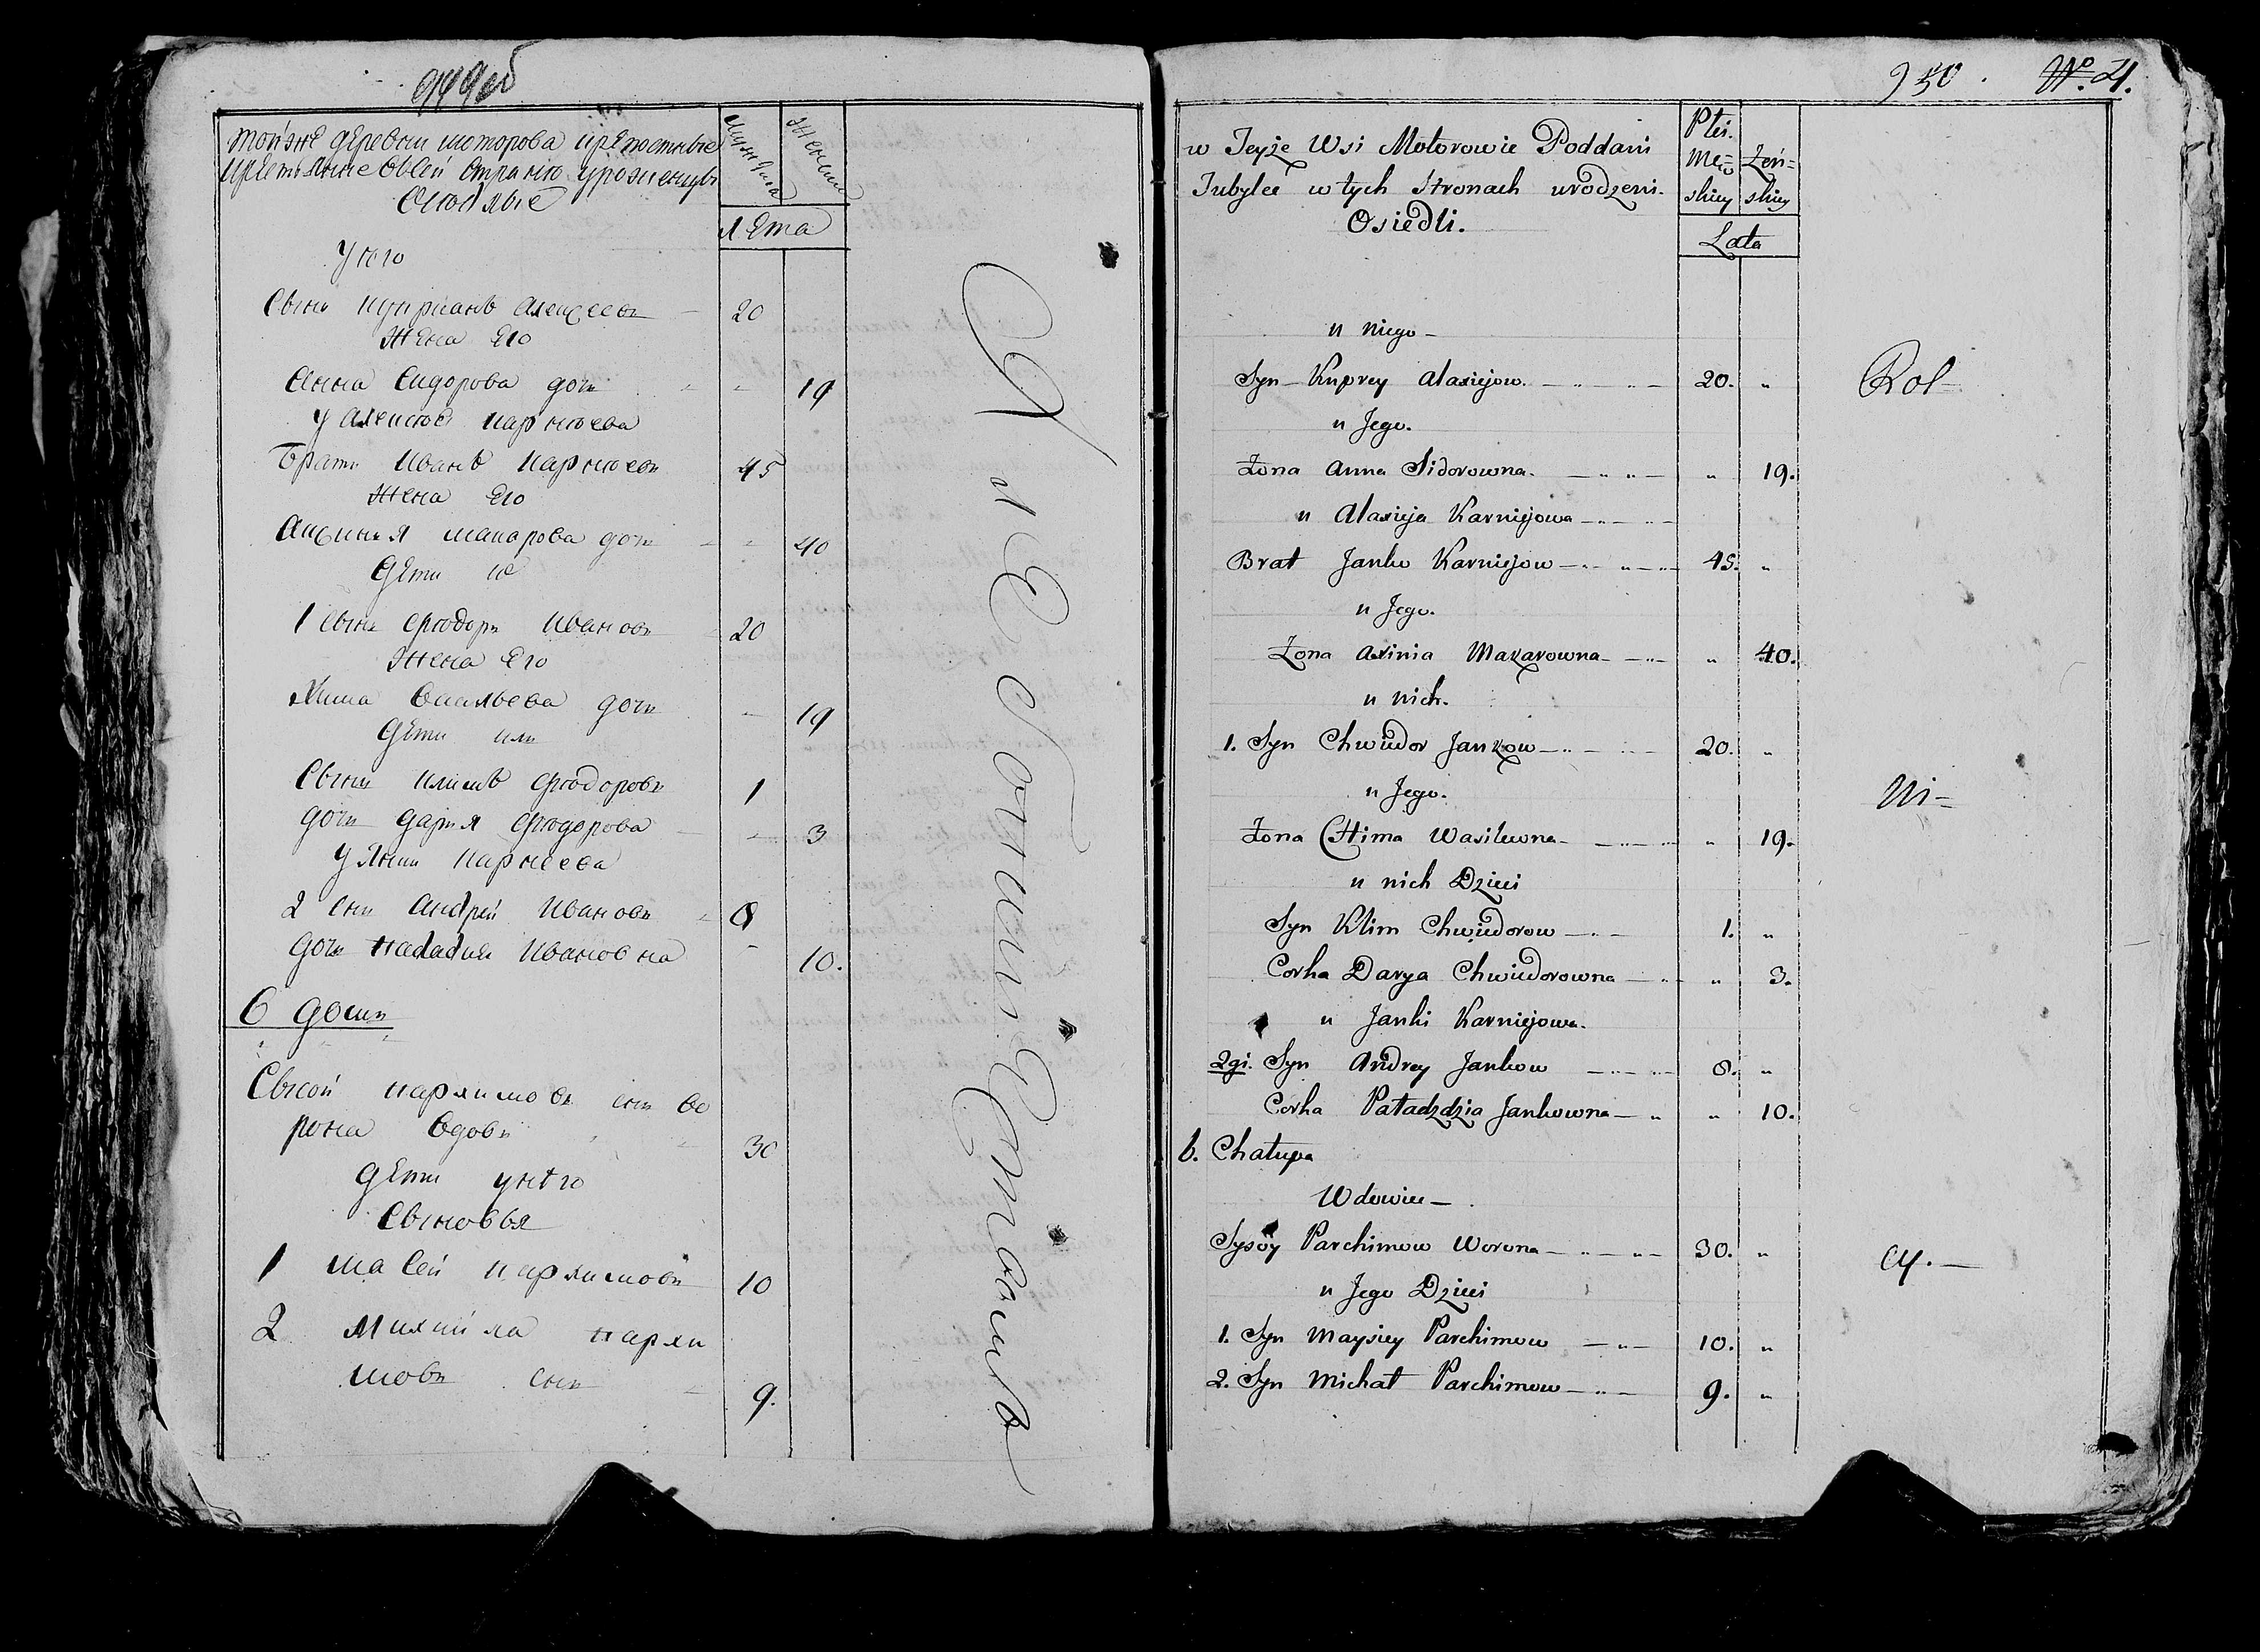 949 об
той же деревни моторова крепостные
крестьяне
оседлые
мужеска
женски
лета
у него
Сынъ Куприанъ Алексеевъ 20
Жена Его
Анна Сидорова дочь 19
у Алексея Карнеева
Братъ Иванъ Карнеевъ 45
Жена Его
Аксинья макарова дочь 40
Дети их
1 Сынъ Фиодоръ Ивановъ 20
Жена Его
Хима Васильева дочь 19
Дети их
Сынъ климъ Фиодоровъ 1
дочь дарья Фиодорова 3
у Янки Карнеева
2 сын Андрей Ивановъ 8
дочь Паладия Ивановна 10.
6 домъ
Сысой пархимовъ сын во
рона вдовъ 30
Дети у него
Сыновья
1 Масей пархимовъ 10
2 Михайла пархи
мовъ сынъ 9.
950. №. 4.
w Teyże Wsi Motorowie Poddani
Jubyłee w tych Stronach urodzeni.
Osiedli.
Płci.
Męz= Zeń=
skiey skiey
Lata
u niego –
Syn – Kuprey Alaxiejow. 20. "
u Jego.
Zona Anna Sidorowna. " 19.
u Alaxieja Karniejowa
Brat Janko Karniejow 45. "
u Jego.
Zona Axinia Makarowna " 40.
u nich.
1. Syn Chwiedor Jankow 20. "
u Jego.
Zona Chima Wasilewna " 19.
u nich Dzieci
Syn Klim Chwiedorow 1. "
Corka Darya Chwiedorowna " 3.
u Janki Karniejowa.
2gi. Syn Andrey Jankow 8. "
Corka Paładzdzia Jankowna " 10.
6. Chałupa
Wdowiec –
Sysoy Parchimow Worona 30. "
u Jego Dzieci
1. Syn Maysiey Parchimow 10. "
2. Syn Michał Parchimow 9. "
Rol –
ni –
cy. –